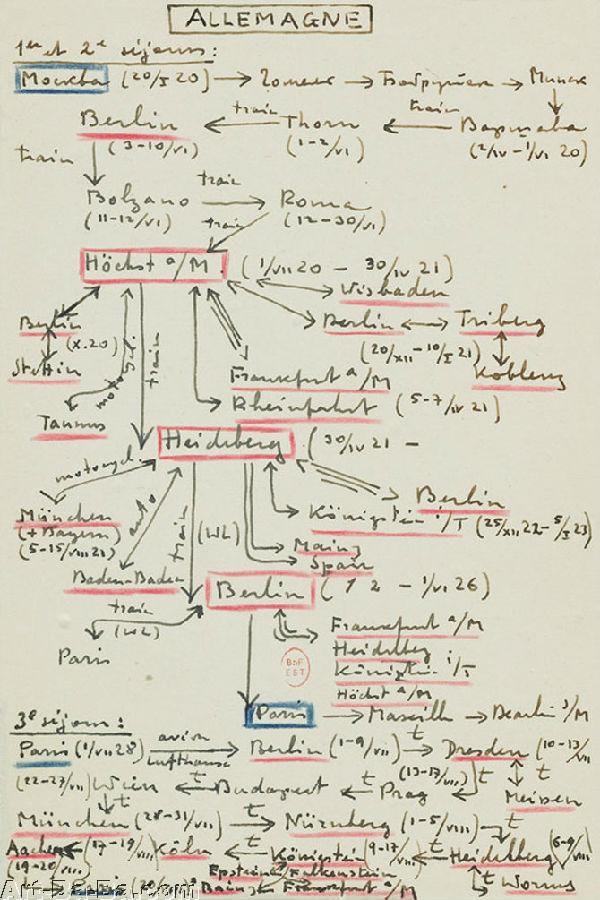 ALLEMAGNE
1er et 2e séjours :
Москва (20/I 20) → Гомель → Бобруйск → Минск
Berlin train Thorn train Варшава
(3-10/VI) (1-2/VI) (2/IV - 1/VI 20)
train
Bolzano train Roma
(11-12/VI) train (12-30/VI)
Höchst a/M. (1/VII 20 - 30/IV 21)
Wisbaden
Berlin Berlin Triberg
(X.20) (20/XII - 10/I 21)
Stettin train Koblenz
Frankfurt a/M
Taunus Rheinfahrt (5-7/IV 21)
Heidelberg (30/IV 21 -
motocycl.
München Berlin
(+ Bayern) auto train (WL) Königstein i/T (25/XII 22 - 5/I 23)
(5-15/VIII 21) Mainz
Baden-Baden Spain
train Berlin ( - 1/VI 26)
(WL) Frankfurt a/M
Paris Heidelberg
Königstein i/T
BnF
EST
Höchst a/M
Paris → Marseille → Beaulieu s/M
3e séjour :
Paris (1/VII 28) avion Lufthansa Berlin (1-9/VII) t Dresden (10-13/VII
(22-27/VII) Wien t Budapest t Prag (13-17/VII) t t Meissen
t
München (28-31/VII) t Nürnberg (1-5/VIII) t
Aachen (17-19/VIII) Köln t Königstein (9-17/VIII) t Heidelberg (6-9/VIII)
(19-20/VIII) Epstein Falkenstein t Worms
Paris Frankfurt a/M